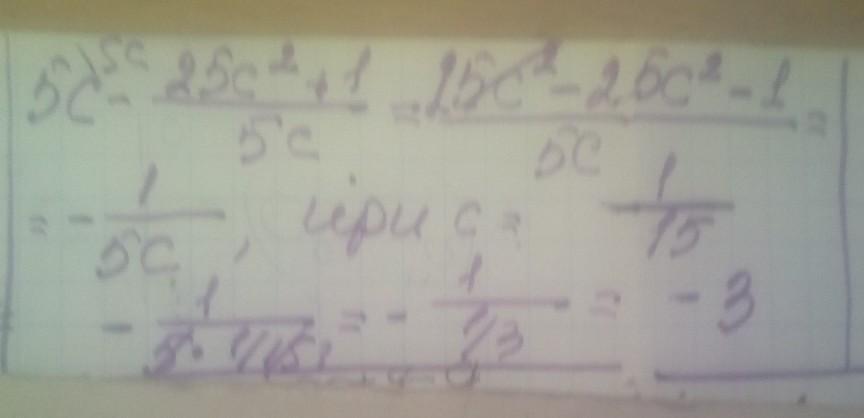 5c\5c - 25c² + 1 / 5c = 25c² - 25c² - 1 / 5c =
= - 1 / 5c, при c = 1 / 15
- 1 / 5 · 1/15 = - 1 / 1/3 = - 3